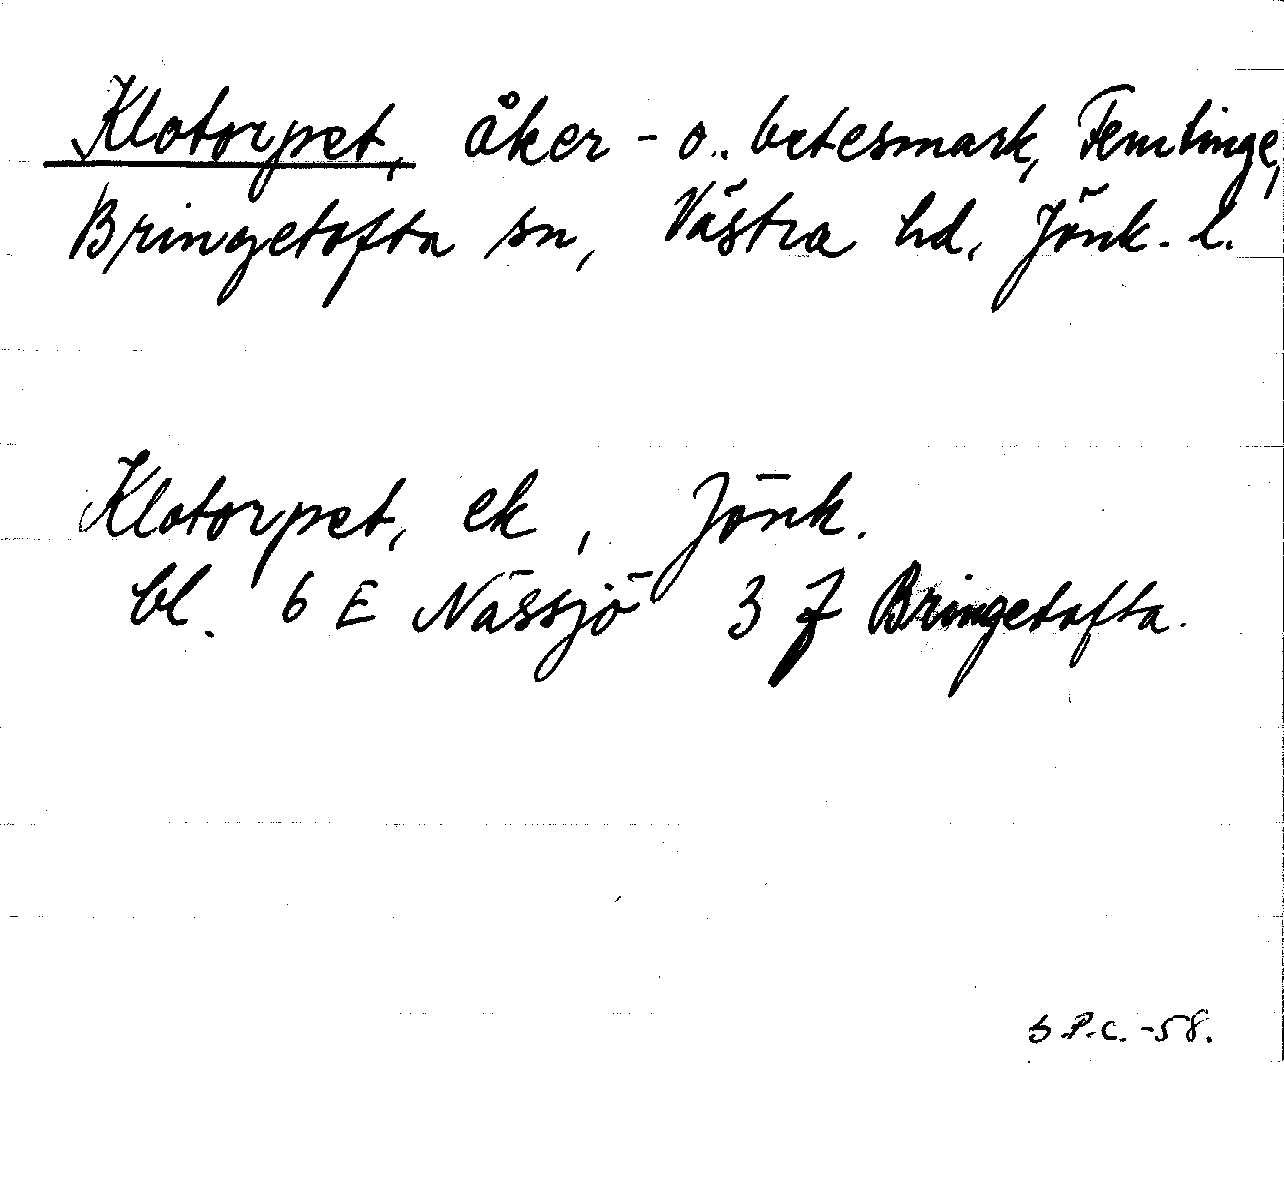 Klotorpet, åker- o. betesmark, Femtinge,
Bringetofta sn, Västra hd, Jönk. l.
Klotorpet, ek, Jönk.
bl. 6 E Nässjö 3 f Bringetofta.
S.P.C. -58.